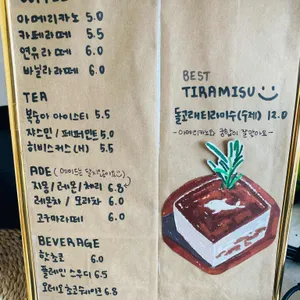 COFFEE
아메리카노 5.0
카페라떼 5.5
연유라떼 6.0
바닐라라떼 6.0
TEA
복숭아 아이스티 5.5
쟈스민 / 페퍼민트 5.0
히비스커스 (H) 5.5
ADE
자몽 / 레몬 / 체리 6.8
레몬차 / 모과차 6.0
고구마라떼 6.0
BEVERAGE
핫초코 6.0
플레인 스무디 6.5
오레오초코쉐이크 6.8
BEST
TIRAMISU
돌고래티라미수 (수제) 12.0
-아메리카노와 궁합이 잘맞아요-